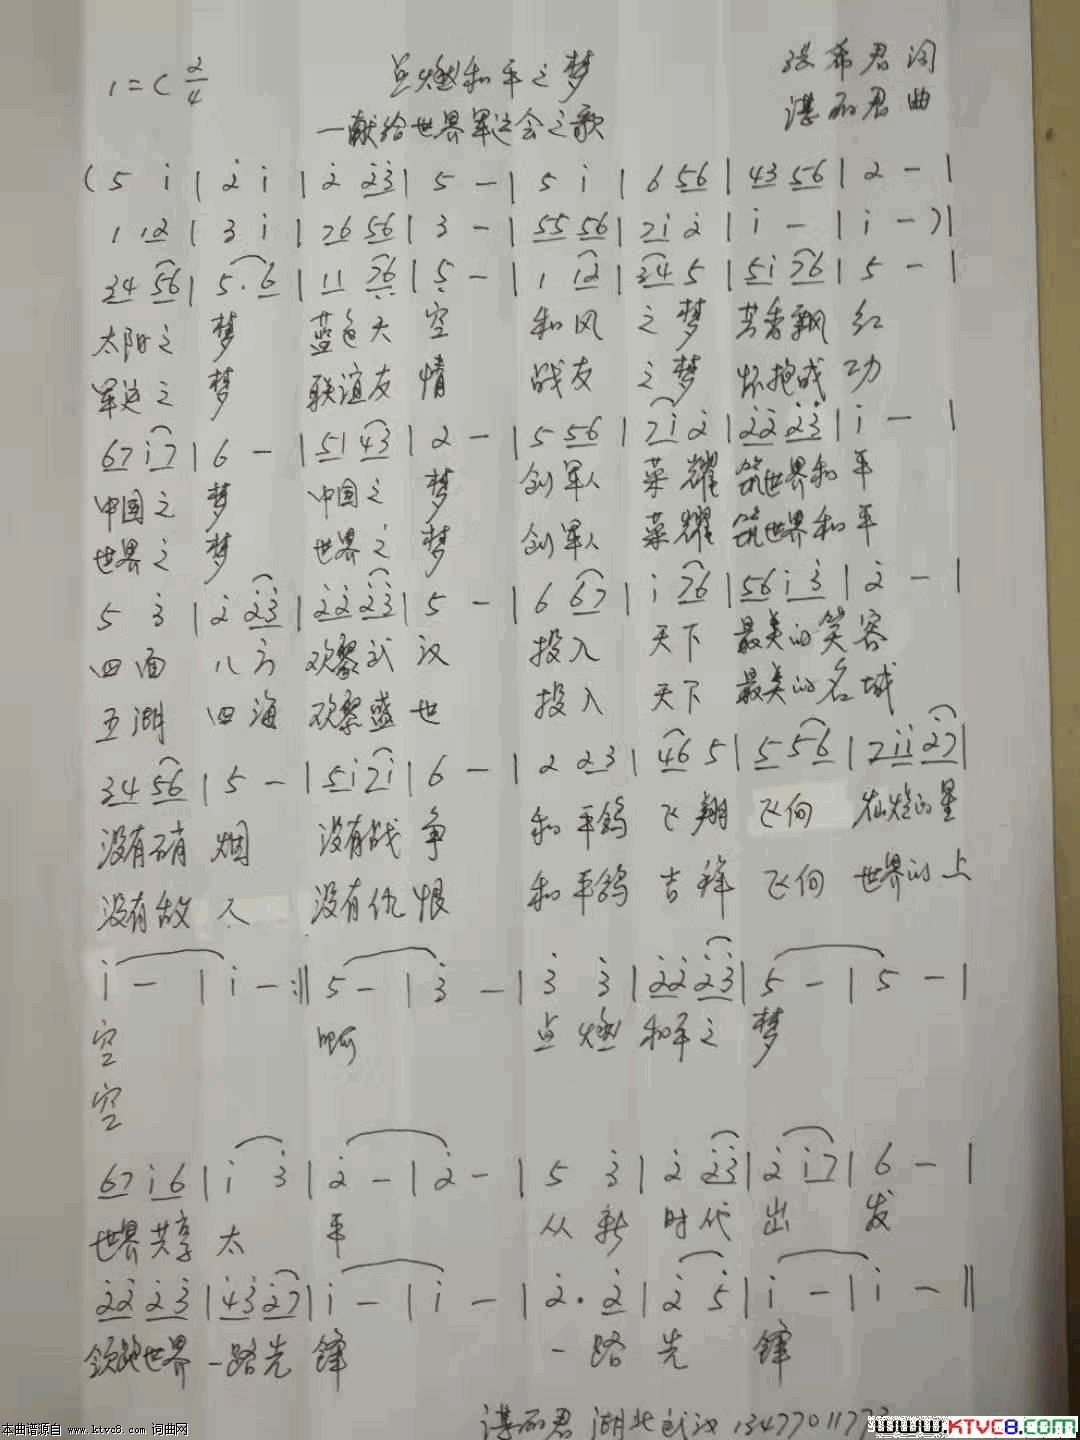 1=C 2/4 点燃和平之梦 张希君词
—献给世界军运会之歌 谌丽君曲
(5 i | 2 i | 2 23 | 5 - | 5 i | 6 56 | 43 56 | 2 - |
1 12 | 3 i | 76 56 | 3 - | 55 56 | 7i 2 | i - | i -)|
34 56 | 5. 6 | 11 76 | 5 - | 1 12 | 34 5 | 5i 76 | 5 - |
太阳之 梦 蓝色天 空 和风 之 梦 芳香飘 红
军运之 梦 联谊友 情 战友 之 梦 怀抱成 功
67 i7 | 6 - | 51 43 | 2 - | 5 56 | 7i 2 | 22 23 | i - |
中国之 梦 中国之 梦 创军人 荣 耀 筑世界和 平
世界之 梦 世界之 梦 创军人 荣 耀 筑世界和 平
5 3 | 2 23 | 22 23 | 5 - | 6 67 | i 76 | 56 i 3 | 2 - |
四面 八方 欢聚武 汉 投入 天下 最美的笑 容
五湖 四海 欢聚盛 世 投入 天下 最美的名 城
34 56 | 5 - | 5i 7i | 6 - | 2 23 | 46 5 | 5 56 | 7ii 27 |
没有硝 烟 没有战 争 和平鸽 飞翔 飞向 灿烂的星
没有敌 人 没有仇 恨 和平鸽 吉祥 飞向 世界的上
i - | i - :‖ 5 - | 3 - | 3 3 | 22 23 | 5 - | 5 - |
空 啊 点燃 和平之 梦
空
67 i 6 | i 3 | 2 - | 2 - | 5 3 | 2 23 | 2 i7 | 6 - |
世界共享 太 平 从新 时代 出 发
22 23 | 43 27 | i - | i - | 2. 2 | 2 5 | i - | i - ‖
领跑世界 一路先 锋 一路 先 锋
谌丽君 湖北武汉 1347701177
本曲谱源自 www.ktvc8.com 词曲网
www.KTVC8.com